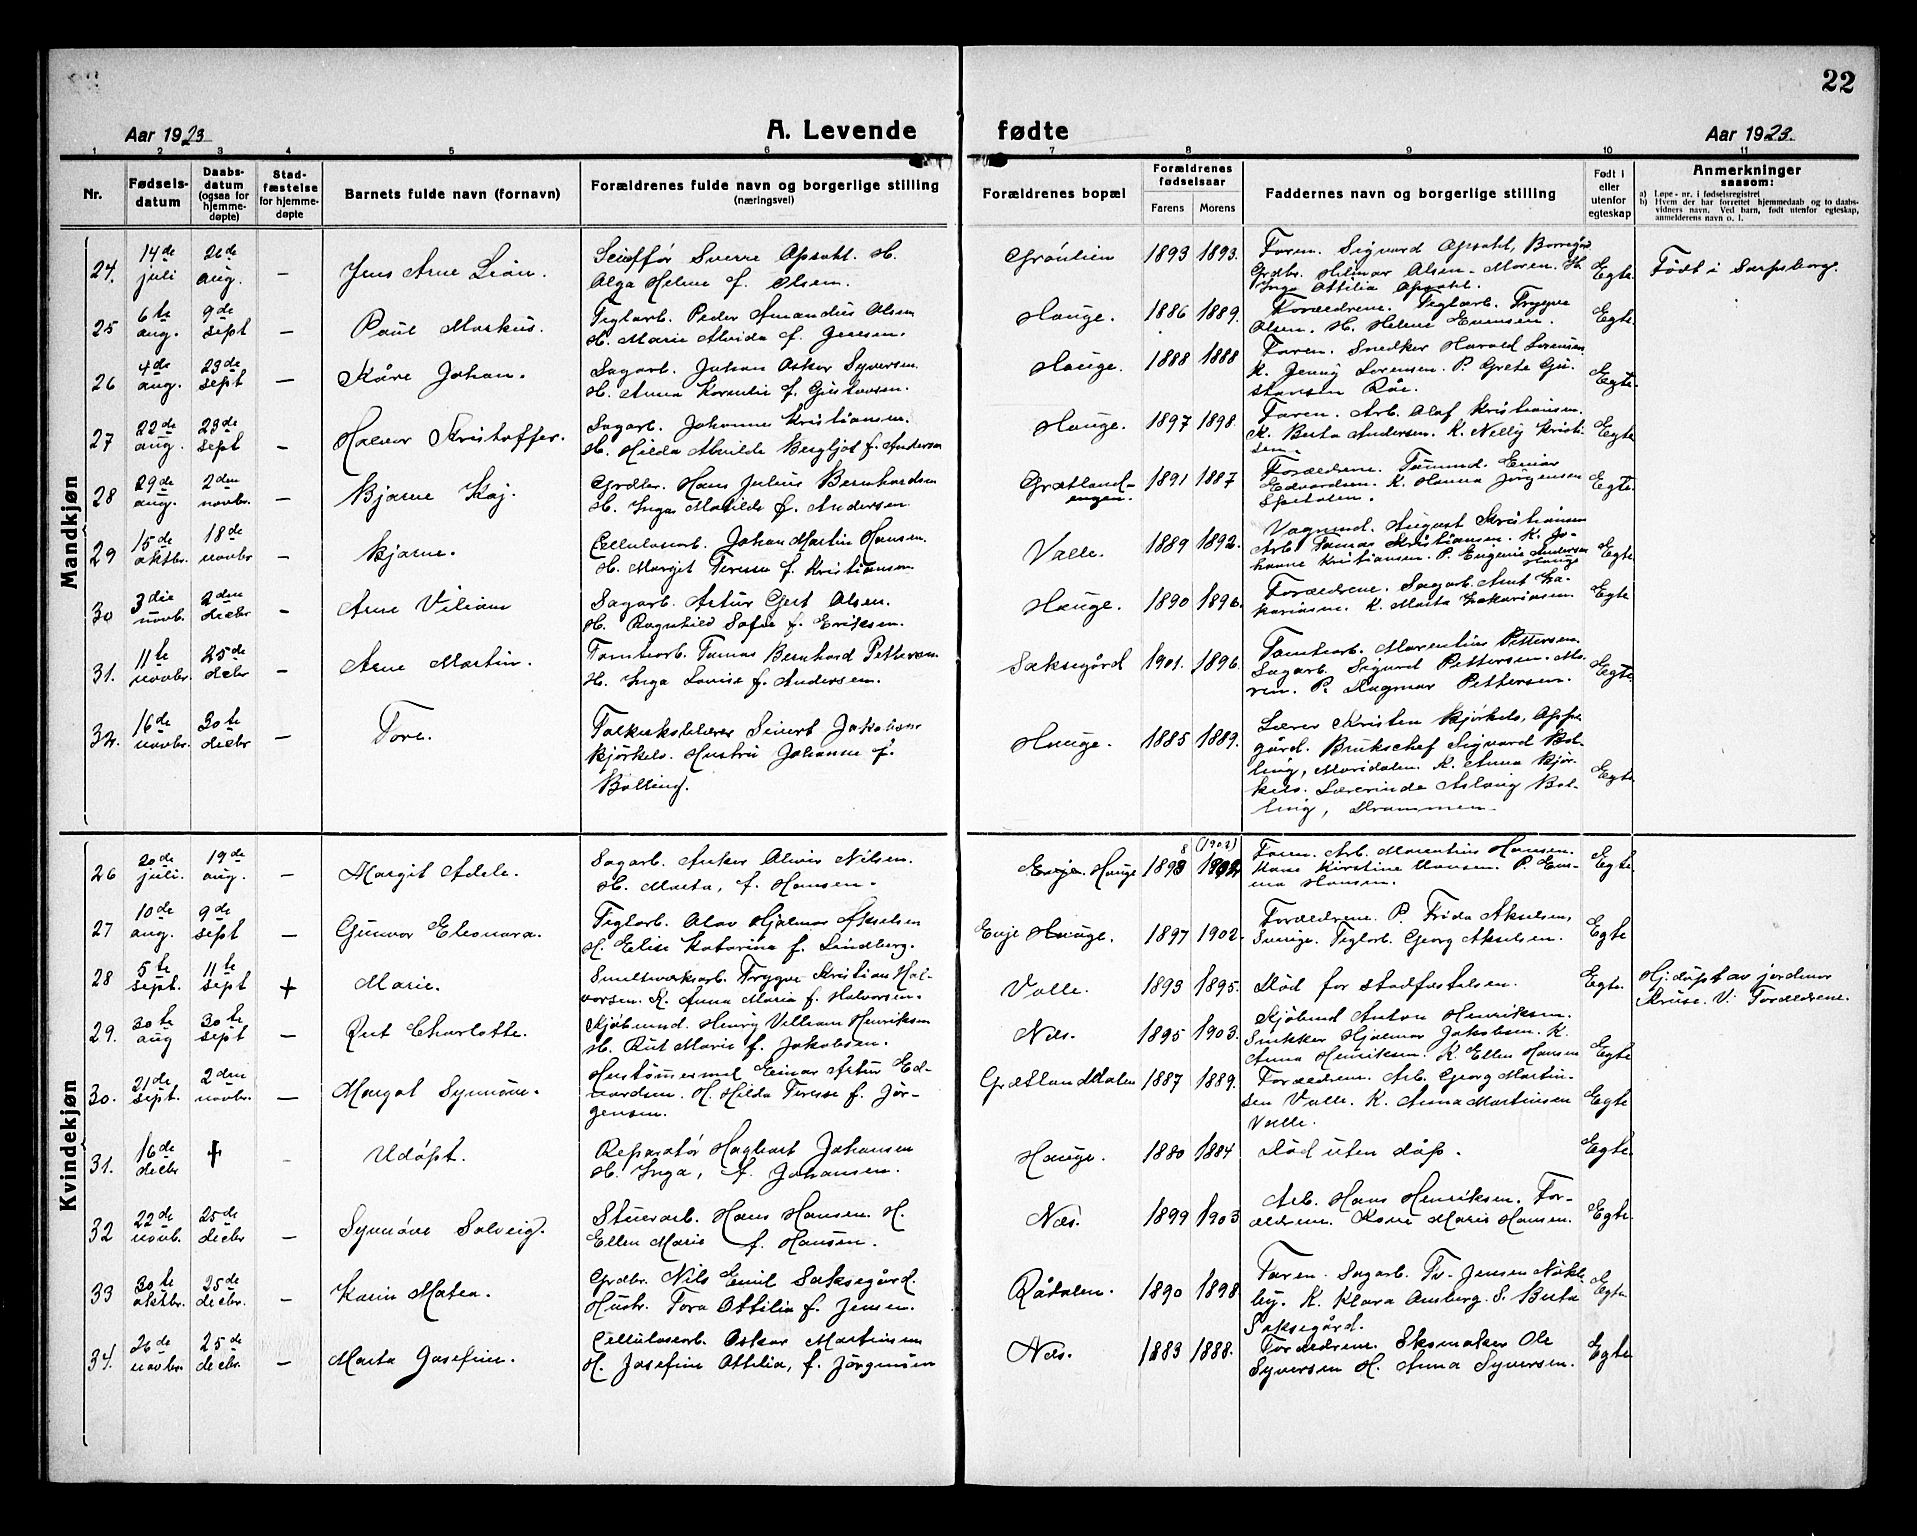 22
Aar 1923
A. Levende fødte
Aar 1923.
1 2 3 4 5 6 7 8 9 10 11
Nr.
Fødsels-
datum
Daabs-
datum
(ogsaa for
hjemme-
døpte)
Stad-
fæstelse
for hjemme-
døpte
Barnets fulde navn (fornavn)
Forældrenes fulde navn og borgerlige stilling
(næringsvei)
Forældrenes bopæl
Forældrenes
fødselsaar
Farens Morens
Faddernes navn og borgerlige stilling
Født i
eller
utenfor
egteskap
Anmerkninger
saasom:
a) Løpe-nr. i fødselsregistret
b) Hvem der har forrettet hjemmedaab og to daabs-
vidners navn. Ved barn, født utenfor egteskap,
anmelderens navn o. l.
Mandkjøn
24. 14de juli 26de aug. – Jens Arne
Sverre Apsahl. H.
Alga Helene f. Olsen.
Grönlien 1893 1893.
Faren. Sigvard Apsahl,
Grdbr. Hilmar Olsen. Moren.
Inga Ottilia Apsahl.
Egte. Født i Sarpsborg.
25 6te aug. 9de sept – Paul Markus.
Teglarb. Peder Amandus Olsen
H. Marie Alvida f. Jensen.
Hauge. 1886 1889.
Forældrene. Teglarb. Trygve
Olsen. H. Helene Evensen.
Egte.
26 4de aug. 23de sept – Kåre Johan.
Sagarb. Johan Oskar Syversen
H. Anna Kornelie f. Gustavsen.
Hauge. 1888 1888
Faren. Snedker Harald Lorensen
K. Jenny Lorensen. P. Grete Gu-
stavsen Råe.
Egte.
27 22de aug. 23de sept – Halvor Kristoffer.
Sagarb. Johannes Kristiansen.
H. Hilda Alvilde Bergljot f. Andersen
Hauge. 1897 1898.
Faren. Arb. Olaf Kristiansen.
K. Berta Andersen. K. Nelly Kristi-
sen.
Egte
28 29de aug. 2den novbr. – Bjarne Kaj.
Grdbr. Hans Julius Bernhardsen
H. Inga Matilde f. Andersen.
Grætland-
engen. 1891 1887
Forældrene. Tømmd. Einar
Edvardsen. K. Hanna Jørgensen
Spetalen.
Egte.
29 15de oktbr. 18de novbr – Bjarne.
Cellulosearb. Johan Martin Hansen.
H. Margit Teresse f. Kristiansen
Valle. 1889 1892.
Vognmd. August Kristiansen
Arb. Tomas Kristiansen. K. Jo-
hanne Kristiansen. P. Eugenie Andersen
Hauge
Egte.
30 3die novb. 2den decbr – Arne Viliam
Sagarb. Artur Gert Olsen.
H. Ragnhild Sofie f. Eriksen.
Hauge. 1890 1896.
Forældrene. Sagarb. Arnt Za-
kariasen. K. Marta Zakariasen.
Egte
31. 11te novbr. 25de decbr – Arne Martin.
Tomtearb. Tomas Bernhard Pettersen
H. Inga Lovise f. Andersen.
Saksegård 1901. 1896.
Tomtearb. Marentius Pettersen.
Sagarb. Sigurd Pettersen. Mo-
ren. P. Dagmar Pettersen.
Egte
32. 16de novbr. 30te decbr – Tore.
Folkeskolelærer Sivert Jakobsen
Bjørkels. Hustru Johanne f.
Bolling.
Hauge. 1885 1889.
Lærer Kristen Bjørkels, Oppe-
gård. Brukschef Sigvard Bol-
ling, Maridalen. K. Anna Bjør-
kels. Lærerinde Aslaug Bol-
ling, Drammen.
Egte
Kvindekjøn
26 20de juli. 19de aug. – Margit Adele.
Sagarb. Anker Oliver Nilsen.
H. Marta, f. Hansen.
Enge Hauge 1898 1902 (1902)
Faren. Arb. Marentius Hansen.
Kone Kirstine Hansen. P. Em-
ma Hansen.
Egte
27 10de aug. 9de sept – Gunvor Eleonora.
Teglarb. Olav Hjalmar Akselsen
H. Elise Katarina f. Lindberg.
Enje Hauge. 1897 1902.
Forældrene. P. Frida Akselsen,
Svinge. Teglarb. Georg Akselsen.
Egte
28 5te sept. 11te sept + Marie.
Smelteverksarb. Trygve Kristian Hal-
vorsen. K. Anna Maria f. Halvorsen.
Valle. 1893 1895.
Död for stadfæstelsen.
Egte. Hj.döpt av jordmor
Kruse. V: Forældrene.
29. 30te aug 30te sept – Rut Charlotte.
Kjöbmd. Henry Villiam Henriksen
H. Rut Marie f. Jakobsen.
Næs. 1895 1903.
Kjöbmd Anton Henriksen.
Snikker Hjalmar Jakobsen. K.
Anna Henriksen. K. Ellen Hansen
Egte
30. 21de sept. 2den novbr. – Margot Synnöve.
Hustömmermd Einar Artur Ed-
vardsen. H. Hilda Teresse f. Jör-
gensen.
Grætland Dalen 1887 1889.
Forældrene. Arb. Georg Martin-
sen Valle. K. Anna Martinsen
Valle.
Egte
31. 16de decbr + – Udöpt.
Reparatør Hagbart Johansen
H. Inga, f. Johansen.
Hauge. 1880 1884
Död uten dåp.
Egte.
32 22de novb. 25de decbr – Synnöve Solveig.
Stuerarb. Hans Hansen. H.
Ellen Marie f. Hansen.
Næs. 1899 1903
Arb. Hans Henriksen. For-
ældrene. Kone Marie Hansen.
Egte.
33 30te oktbr. 25de decbr. – Karin Matea.
Grdbr. Nils Emil Saksegård.
Hustr. Tora Ottilia f. Jensen.
Rådalen. 1890 1898
Faren. Sagarb. Jensen Nökle-
by. K. Klara Amberg. S. Berta
Saksegård.
Egte
34. 26de novbr. 25de decbr. – Marta Josefine.
Cellulosearb. Oskar Martinsen
H. Josefine Ottilia, f. Jørgensen
Næs. 1883 1888.
Forældrene. Skomaker Ole
Syversen H. Anna Syversen.
Egte